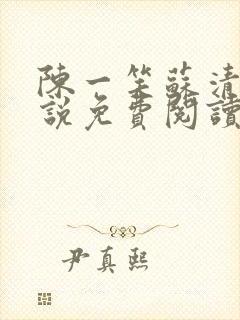 陳一笙蘇清
說免費閱讀
尹真熙